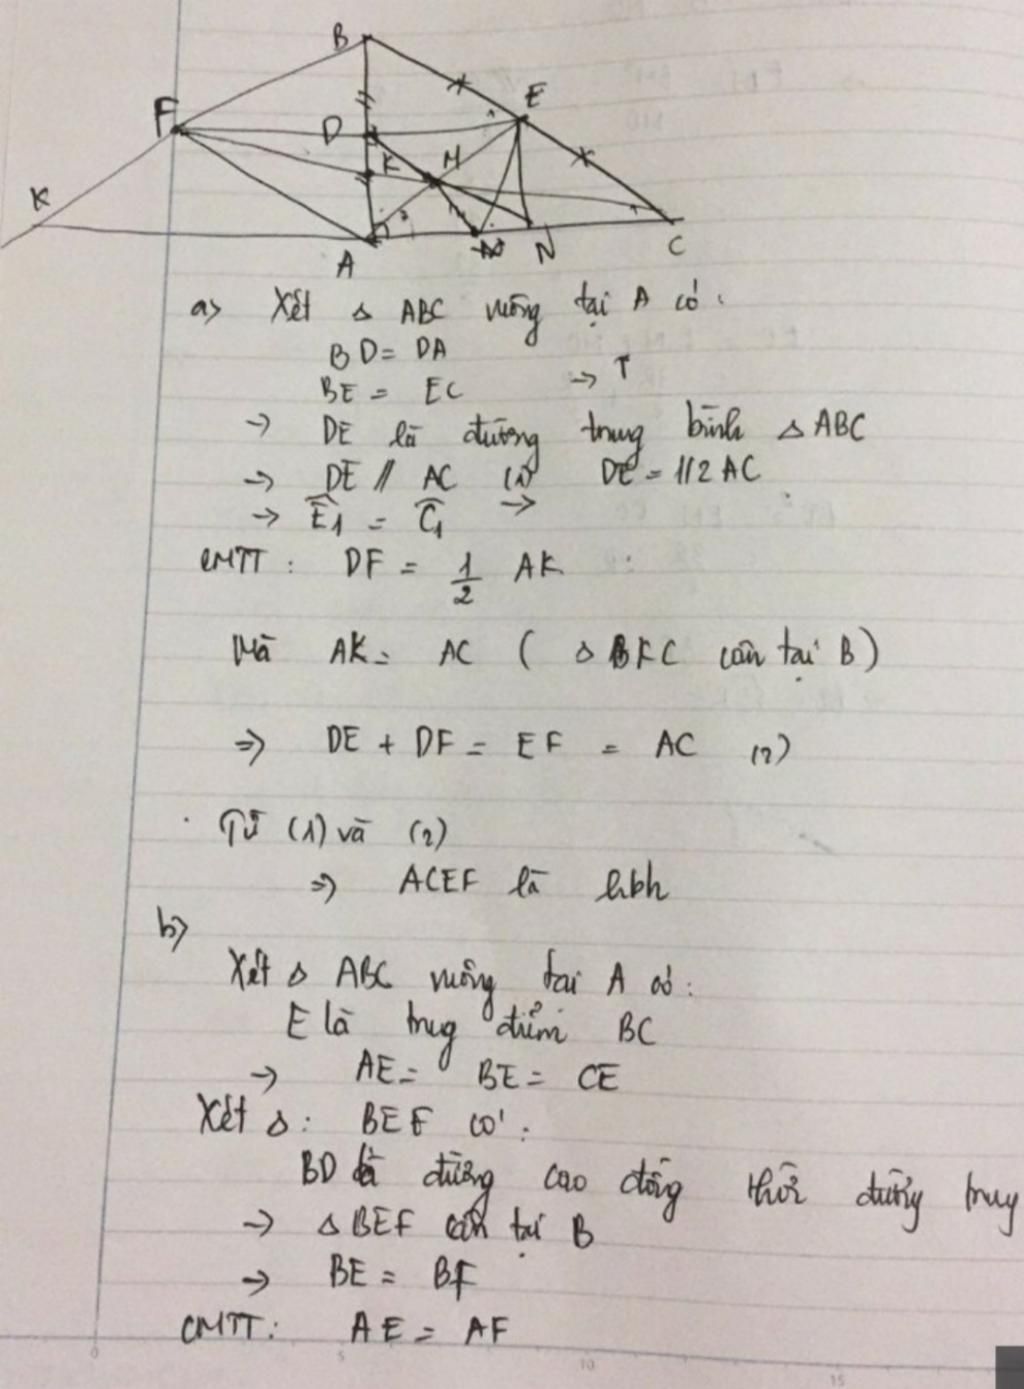 B
F
D
E
K
H
K
A
N
C
a) Xét Δ ABC vuông tại A có:
BD = DA
BE = EC →
→ DE là đường trung bình Δ ABC
→ DE // AC (1) DE = 1/2 AC
→ Ê1 = Ĉ1 →
CMTT: DF = 1/2 AK
Mà AK = AC (Δ BKC cân tại B)
⇒ DE + DF = EF = AC (2)
Từ (1) và (2)
⇒ ACEF là hbh
b)
Xét Δ ABC vuông tại A có:
E là trung điểm BC
→ AE = BE = CE
Xét Δ: BEF có:
BD là đường cao đồng thời đường trung
→ Δ BEF cân tại B
→ BE = BF
CMTT: AE = AF
0 5 10 15